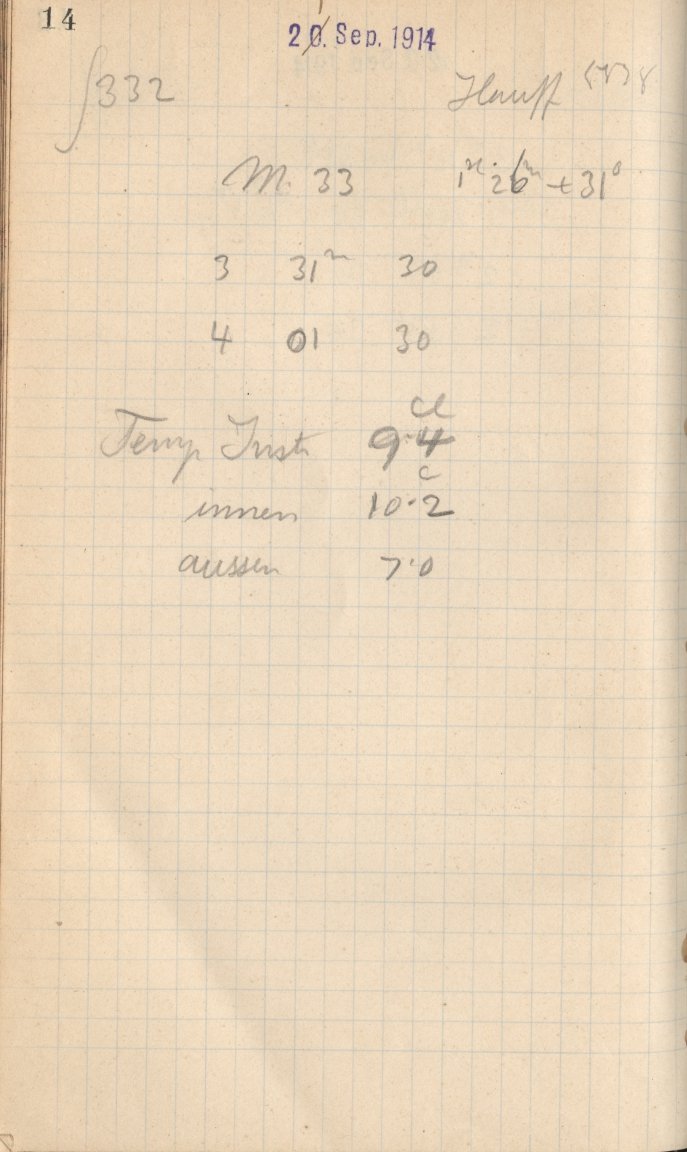 14
20. Sep. 1914
1
∫332 Hauff
M. 33 1h 26m +31°
3 31m 30
4 01 30
Cl
Temp Instr 9.4
c
innen 10.2
aussen 7.0